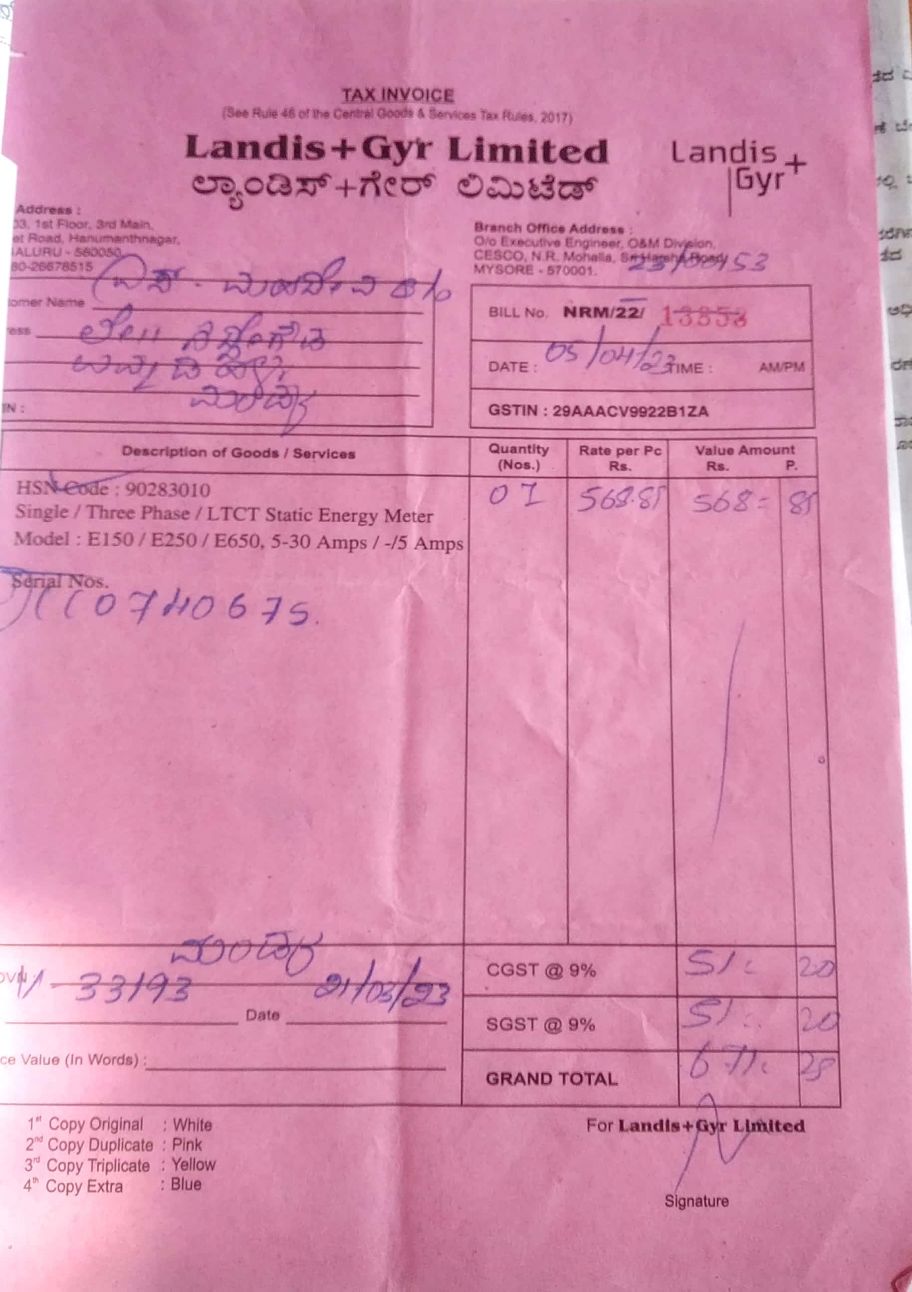 TAX INVOICE
(See Rule 46 of the Central Goods & Services Tax Rules, 2017)
Landis+Gyr Limited
ಲ್ಯಾಂಡಿಸ್+ಗೇರ್ ಲಿಮಿಟೆಡ್
Landis Gyr+
Address :
03, 1st Floor, 3rd Main,
et Road, Hanumanthnagar,
ALURU - 560050.
80-26678515
Branch Office Address :
O/o Executive Engineer, O&M Division,
CESCO, N.R. Mohalla, Sri Harsha Road
MYSORE - 570001.
omer Name
ress
IN :
BILL No. NRM/22/ 13853
DATE : 05/04/23 TIME : AM/PM
GSTIN : 29AAACV9922B1ZA
Description of Goods / Services
Quantity (Nos.)
Rate per Pc Rs.
Value Amount Rs. P.
HSN Code : 90283010
Single / Three Phase / LTCT Static Energy Meter
Model : E150 / E250 / E650, 5-30 Amps / -/5 Amps
01 568.85 568= 85
Serial Nos.
0740675.
33193 21/03/23
Date
CGST @ 9% 51. 20
SGST @ 9% 51. 20
ce Value (In Words) :
GRAND TOTAL 671. 25
1st Copy Original : White
2nd Copy Duplicate : Pink
3rd Copy Triplicate : Yellow
4th Copy Extra : Blue
For Landis+Gyr Limited
Signature